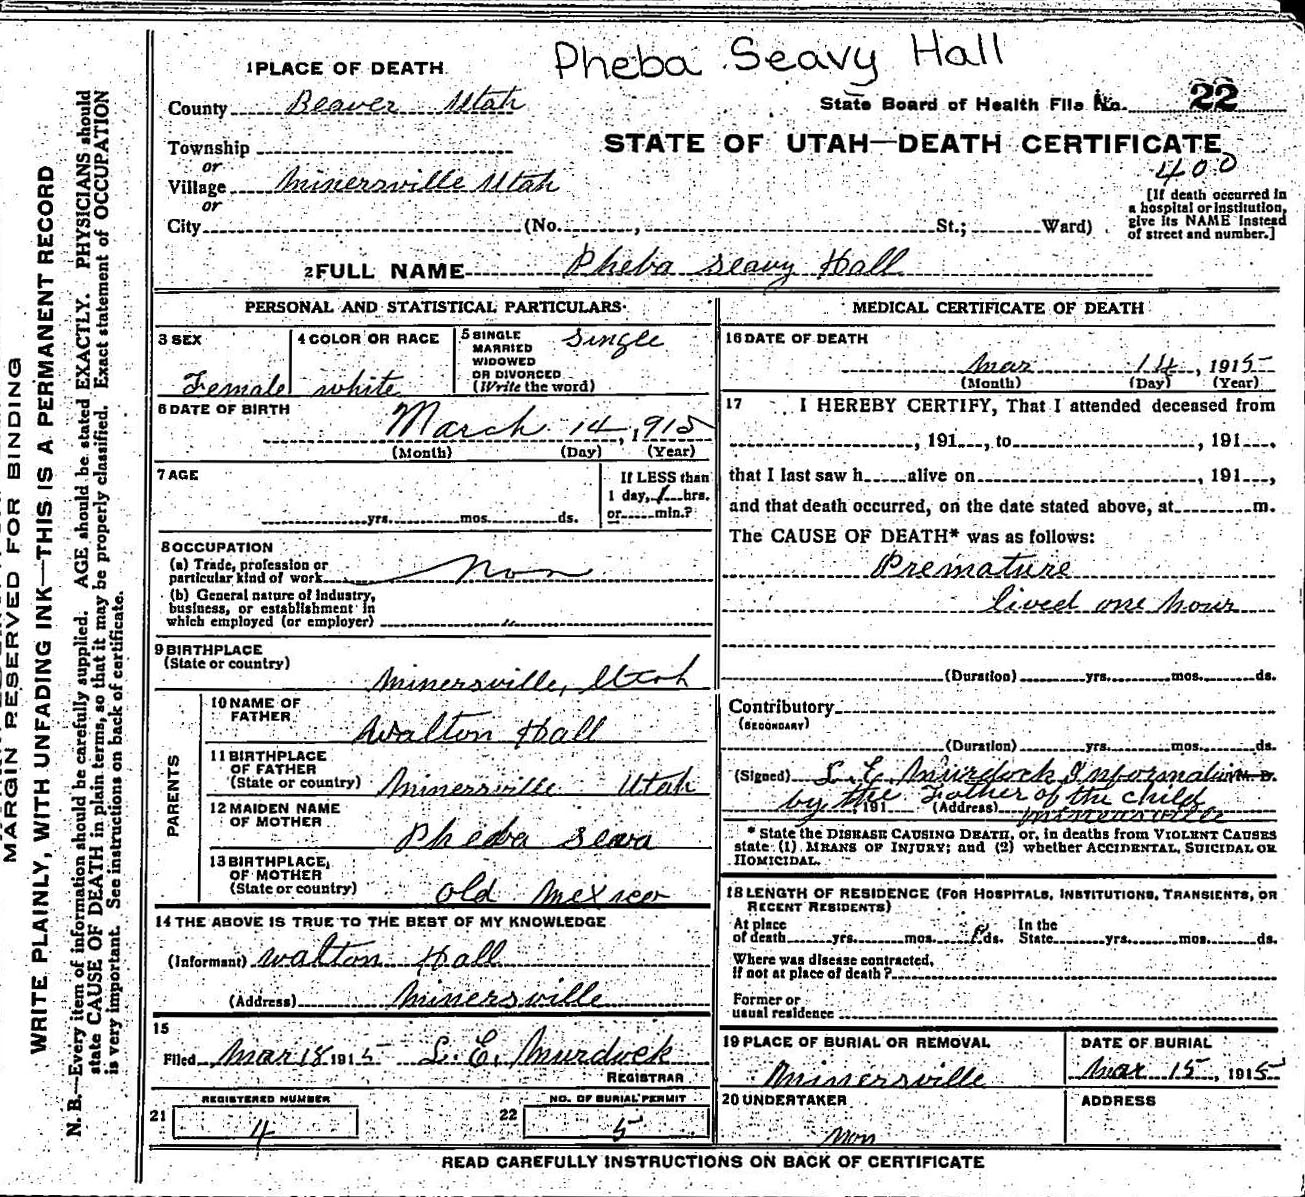 MARGIN RESERVED FOR BINDING
WRITE PLAINLY, WITH UNFADING INK—THIS IS A PERMANENT RECORD
N. B.—Every item of information should be carefully supplied. AGE should be stated EXACTLY. PHYSICIANS should
state CAUSE OF DEATH in plain terms, so that it may be properly classified. Exact statement of OCCUPATION
is very important. See instructions on back of certificate.
Pheba Seavy Hall
1 PLACE OF DEATH
County Beaver Utah
State Board of Health File No. 22
Township
STATE OF UTAH—DEATH CERTIFICATE
400
or
Village Minersville Utah
or
City (No. , St.; Ward)
[If death occurred in
a hospital or institution,
give its NAME instead
of street and number.]
2 FULL NAME Pheba Seavy Hall
PERSONAL AND STATISTICAL PARTICULARS
3 SEX
Female
4 COLOR OR RACE
white
5 SINGLE
MARRIED
WIDOWED
OR DIVORCED
(Write the word)
Single
6 DATE OF BIRTH
March 14, 1915
(Month) (Day) (Year)
7 AGE
yrs. mos. ds.
If LESS than
1 day, 1 hrs.
or min.?
8 OCCUPATION
(a) Trade, profession or
particular kind of work Non
(b) General nature of industry,
business, or establishment in
which employed (or employer) "
9 BIRTHPLACE
(State or country)
Minersville, Utah
PARENTS
10 NAME OF
FATHER
Walton Hall
11 BIRTHPLACE
OF FATHER
(State or country) Minersville Utah
12 MAIDEN NAME
OF MOTHER
Pheba Seava
13 BIRTHPLACE
OF MOTHER
(State or country)
Old Mexico
14 THE ABOVE IS TRUE TO THE BEST OF MY KNOWLEDGE
(Informant) Walton Hall
(Address) Minersville
15
Filed Mar 18 1915 L. E. Murdock
REGISTRAR
21
REGISTERED NUMBER
4
22
NO. OF BURIAL PERMIT
5
MEDICAL CERTIFICATE OF DEATH
16 DATE OF DEATH
Mar 14, 1915
(Month) (Day) (Year)
17 I HEREBY CERTIFY, That I attended deceased from
, 191 , to , 191 ,
that I last saw h alive on , 191 ,
and that death occurred, on the date stated above, at m.
The CAUSE OF DEATH* was as follows:
Premature
lived one hour
(Duration) yrs. mos. ds.
Contributory
(SECONDARY)
(Duration) yrs. mos. ds.
(Signed) L. E. Murdock Information M. D.
by the Father of the child
, 191 (Address) Minersville
* State the DISEASE CAUSING DEATH, or, in deaths from VIOLENT CAUSES
state (1) MEANS OF INJURY; and (2) whether ACCIDENTAL, SUICIDAL OR
HOMICIDAL.
18 LENGTH OF RESIDENCE (FOR HOSPITALS, INSTITUTIONS, TRANSIENTS, OR
RECENT RESIDENTS)
At place In the
of death yrs. mos. ds. State yrs. mos. ds.
Where was disease contracted,
if not at place of death?
Former or
usual residence
19 PLACE OF BURIAL OR REMOVAL
Minersville
DATE OF BURIAL
Mar 15, 1915
20 UNDERTAKER
Non
ADDRESS
READ CAREFULLY INSTRUCTIONS ON BACK OF CERTIFICATE